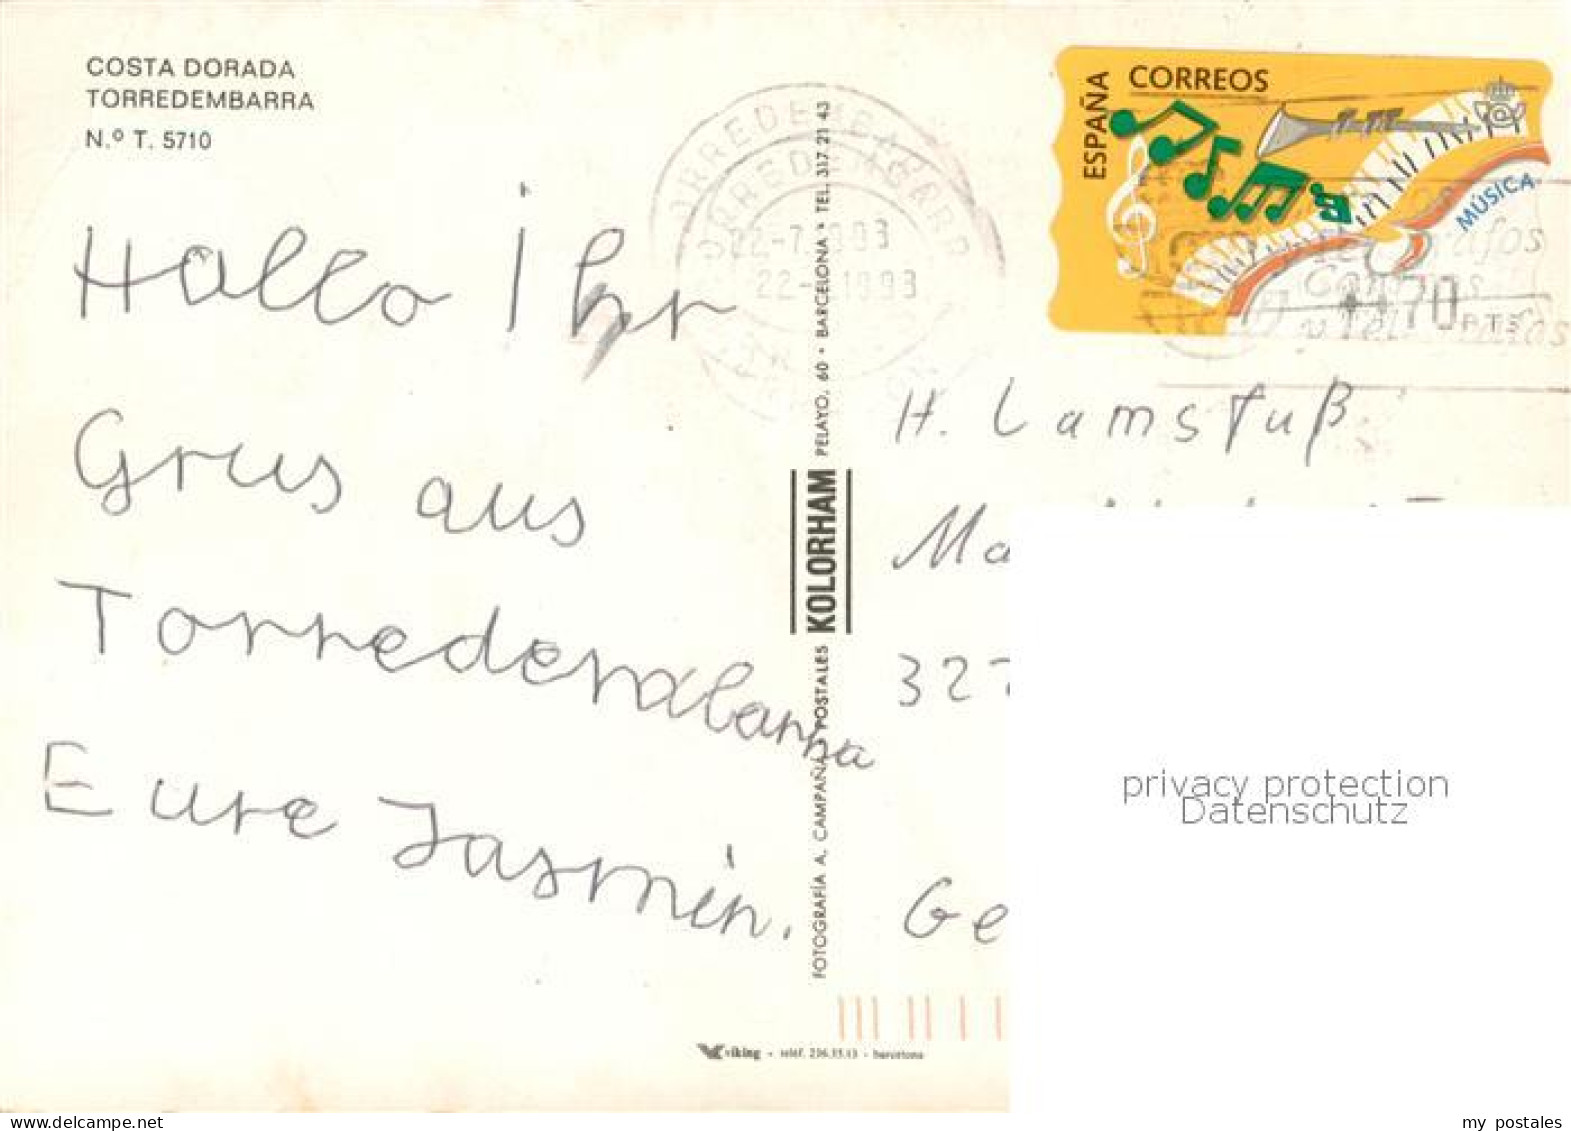 COSTA DORADA
TORREDEMBARRA
N.º T. 5710
Hallo Ihr
Grus aus
Torredembarra
Eure Jasmin.
FOTOGRAFÍA A. CAMPAÑÁ POSTALES KOLORHAM PELAYO, 60 • BARCELONA • TEL. 317 21 43
viking - teléf. 236.35.13 - barcelona
TORREDEMBARRA
22-7 1993
22- 1993
ESPAÑA
CORREOS
MÚSICA
*470 PTS
H. Lamsfuß
Ma
327
Ge
privacy protection
Datenschutz
my postales
https://www.delcampe.net